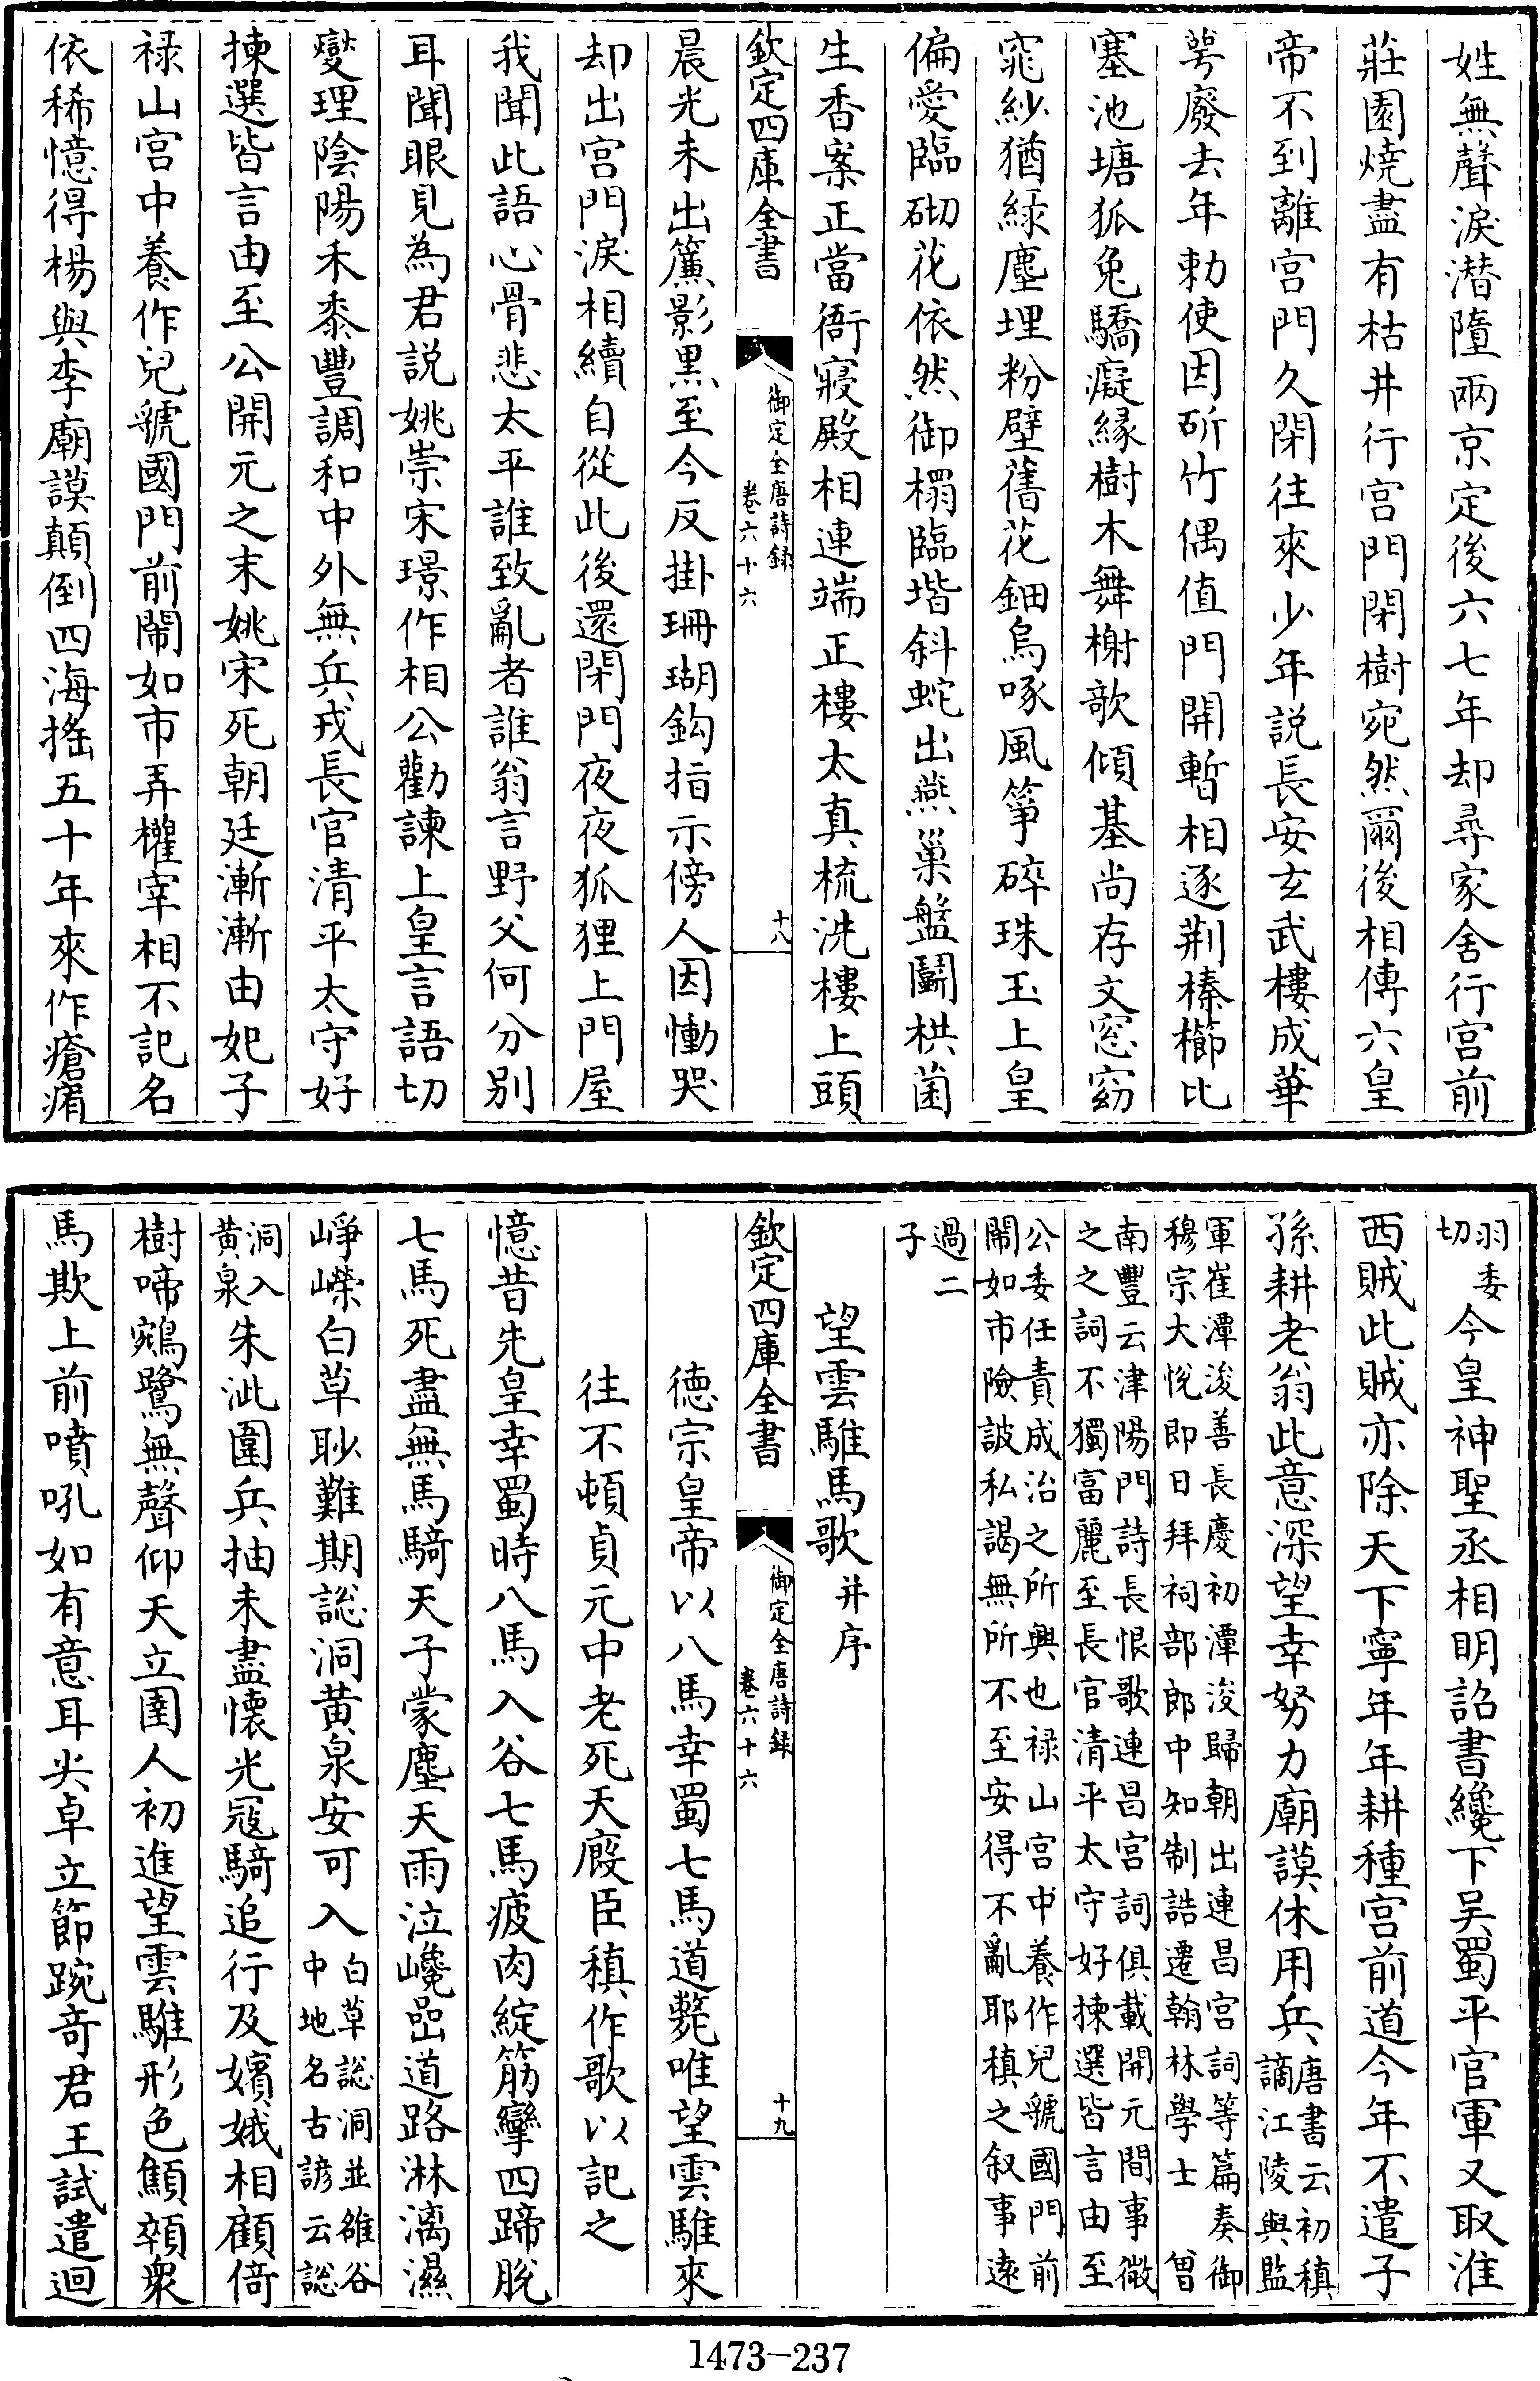 姓無聲淚潛墮兩京定後六七年却尋家舍行宫前
莊園燒盡有枯井行宫門閉樹宛然爾後相傳六皇
帝不到離宫門久閉往來少年説長安玄武樓成華
萼廢去年勅使因斫竹偶值門開暫相逐荆榛櫛比
塞池塘狐兔驕癡緣樹木舞榭歌傾基尚存文窓窈
窕紗猶綠塵埋粉壁舊花鈿烏啄風箏碎珠玉上皇
偏愛臨砌花依然御榻臨堦斜蛇出燕巢盤鬭栱菌
生香案正當衙寢殿相連端正樓太真梳洗樓上頭
欽定四庫全書
御定全唐詩録
卷六十六
十八
晨光未出簾影黒至今反掛珊瑚鈎指示傍人因慟哭
却出宫門淚相續自從此後還閉門夜夜狐狸上門屋
我聞此語心骨悲太平誰致亂者誰翁言野父何分别
耳聞眼見為君説姚崇宋璟作相公勸諫上皇言語切
燮理陰陽禾黍豐調和中外無兵戎長官清平太守好
揀選皆言由至公開元之末姚宋死朝廷漸漸由妃子
禄山宫中養作兒虢國門前鬧如市弄權宰相不記名
依稀憶得楊與李廟謨顛倒四海摇五十年來作瘡痏
羽委
切
今皇神聖丞相明詔書纔下吴蜀平官軍又取淮
西賊此賊亦除天下寧年年耕種宫前道今年不遣子
孫耕老翁此意深望幸努力廟謨休用兵
唐書云初稹
謫江陵與監
軍崔潭浚善長慶初潭浚歸朝出連昌宫詞等篇奏御
穆宗大悦即日拜祠部郎中知制誥遷翰林學士　曽
南豐云津陽門詩長恨歌連昌宫詞俱載開元間事微
之之詞不獨富麗至長官清平太守好揀選皆言由至
公委任責成治之所興也禄山宫中養作兒虢國門前
鬧如市險詖私謁無所不至安得不亂耶稹之叙事逺
過二
子
望雲騅馬歌并序
德宗皇帝以八馬幸蜀七馬道斃唯望雲騅來
往不頓貞元中老死天廐臣稹作歌以記之
欽定四庫全書
御定全唐詩録
卷六十六
十九
憶昔先皇幸蜀時八馬入谷七馬疲肉綻筋攣四蹄脱
七馬死盡無馬騎天子蒙塵天雨泣巉嵒道路淋漓濕
崢嶸白草眇難期谾洞黄泉安可入
白草谾洞並雒谷
中地名古諺云谾
洞入
黄泉
朱泚圍兵抽未盡懐光冦騎追行及嬪娥相顧倚
樹啼鵷鷺無聲仰天立圉人初進望雲騅形色顦顇衆
馬欺上前噴吼如有意耳尖卓立節踠竒君王試遣迴
1473-237